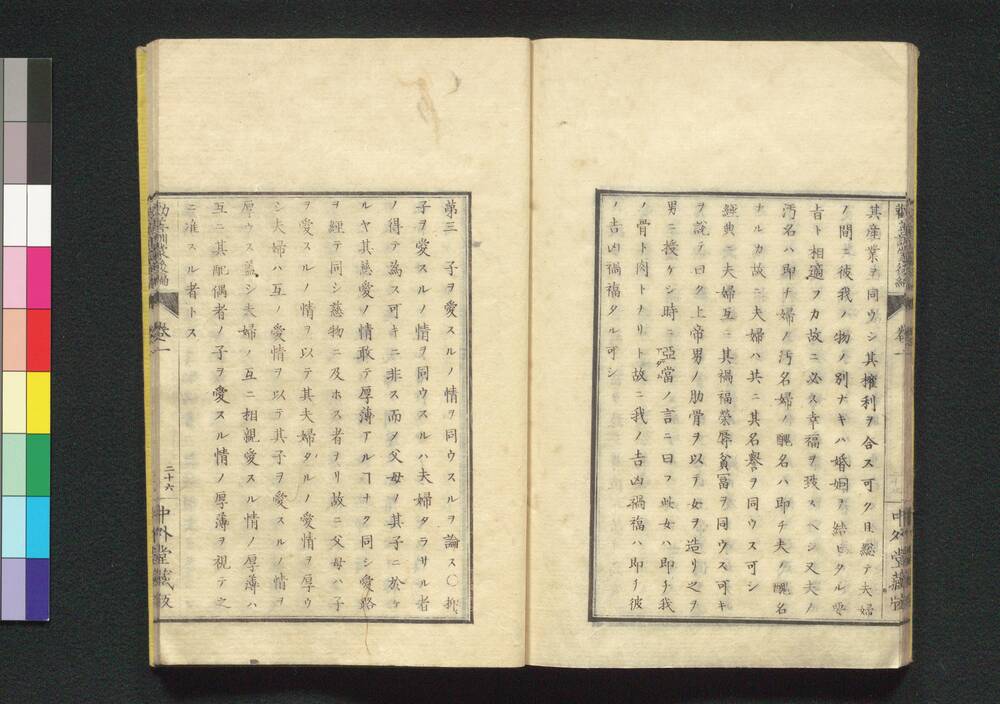 其産業ヲ同ウシ其権利ヲ合ス可ク且総テ夫婦
ノ間ニ彼我ノ物ノ別ナキハ婚姻ヲ結
旨ト相適フカ故ニ必ス幸福ヲ致スヘシ又夫ノ
汚名ハ即チ婦ノ汚名婦ノ醜名ハ即チ夫ノ醜名
ナルカ故ニ夫婦ハ共ニ其名誉ヲ同ウス可シ
経典ニ夫婦互ニ其禍福栄辱貧富ヲ同ウス可キ
ヲ説テ曰ク上帝男ノ肋骨ヲ以テ女ヲ造リ之ヲ
男ニ授ケシ時ニ亞當ノ言ニ曰フ此女ハ即チ我
ノ骨ト肉トナリト故ニ我ノ吉凶禍福ハ即チ彼
ノ吉凶禍福タル可シ
卷一
中外堂藏版
第三 子ヲ愛スルノ情ヲ同ウスルヲ論ス〇抑
子ヲ愛スルノ情ヲ同ウスルハ夫婦タラサル者
ノ得テ為ス可キニ非ス而メ父母ノ其子ニ於ケ
ルヤ其慈愛ノ情敢テ厚薄アルヿナク同シ愛路
ヲ經テ同シ慈物ニ及ホス者ナリ故ニ父母ハ子
ヲ愛スルノ情ヲ以テ其夫婦タルノ愛情ヲ厚ウ
シ夫婦ハ互ノ愛情ヲ以テ其子ヲ愛スルノ情ヲ
厚ウス蓋シ夫婦ノ互ニ相親愛スル情ノ厚薄ハ
互ニ其配偶者ノ子ヲ愛スル情ノ厚薄ヲ視テ之
ニ准スル者トス
卷一
二十六
中外堂藏版